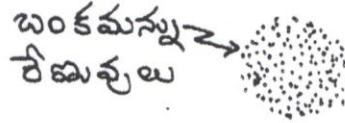 బంకమన్ను
రేణువులు